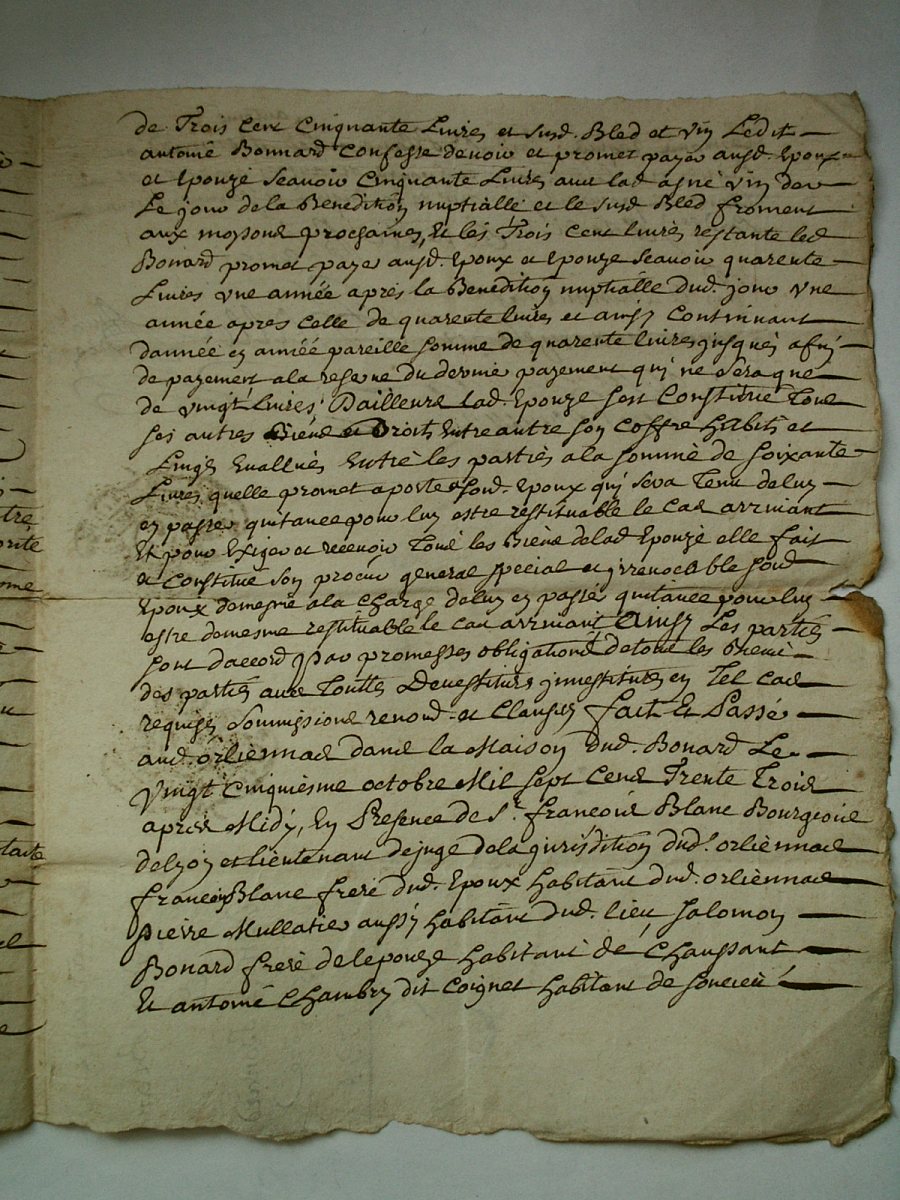 de Trois Cent Cinquante Livres et susd. Bled et vin Ledit
antoine Bonnard Confesse devoir et promet payer ausd. Epoux
et Epouze Scavoir Cinquante Livres avec lad. asnè vin de
Le jour de la Benediction nuptialle et le susd. Bled froment
aux moysons prochaines, Et les Trois Cent livres restante led.
Bonard promet payer ausd. Epoux et Epouze Scavoir quarente
Livres vne année aprés la Benedition nuptialle dud. jour vne
année apres celle de quarente livres et ainsy Continuant
dannée en année pareille somme de quarente livres jusques a fin
de payement a la reserve du dernier payement qui ne sera que
de vingt Livres, Dailleurs Lad. Epouze sest Constitué Tous
ses autres Biens et Droits Entre autre son Coffre habits et
Linges Evallués Entre les parties a la somme de soixante
Livres quelle promet aporter a sond. Epoux qui sera Tenu de luy
en passer quitance pour luy estre restituable le Cas arrivant
Et pour Exiger et recevoir Tous les Biens de lad. Epouze elle fait
et Constitue son procur. general special et jrrevocable sond.
Epoux demesme a la Charge de luy en passer quitance pour luy
estre demesme restituable le cas arrivant, Ainsy Les parties
sont daccord Par promesses obligations de tous les biens
des parties aux Touttes Devestitures jnvestitures en Tel cas
requises Soummissions renond. et Clauses fait Et Passé
aud. orliennas dans la Maison dud. Bonard Le
Vingt Cinquiesme octobre Mil sept Cens Trente Trois
apres Midy, En Presence de Sr. francois Blanc Bourgeois
de lyon et lieutenant de juge de la jurisdition dud. orliennas
francois Blanc frere dud. Epoux habitant dud. orliennas
pierre Mullatier aussy habitant dud. lieu Salomon
Bonard frere de lepouze habitant de Chaussant
Et antoine Chambry dit Coignet habitant de soucieu